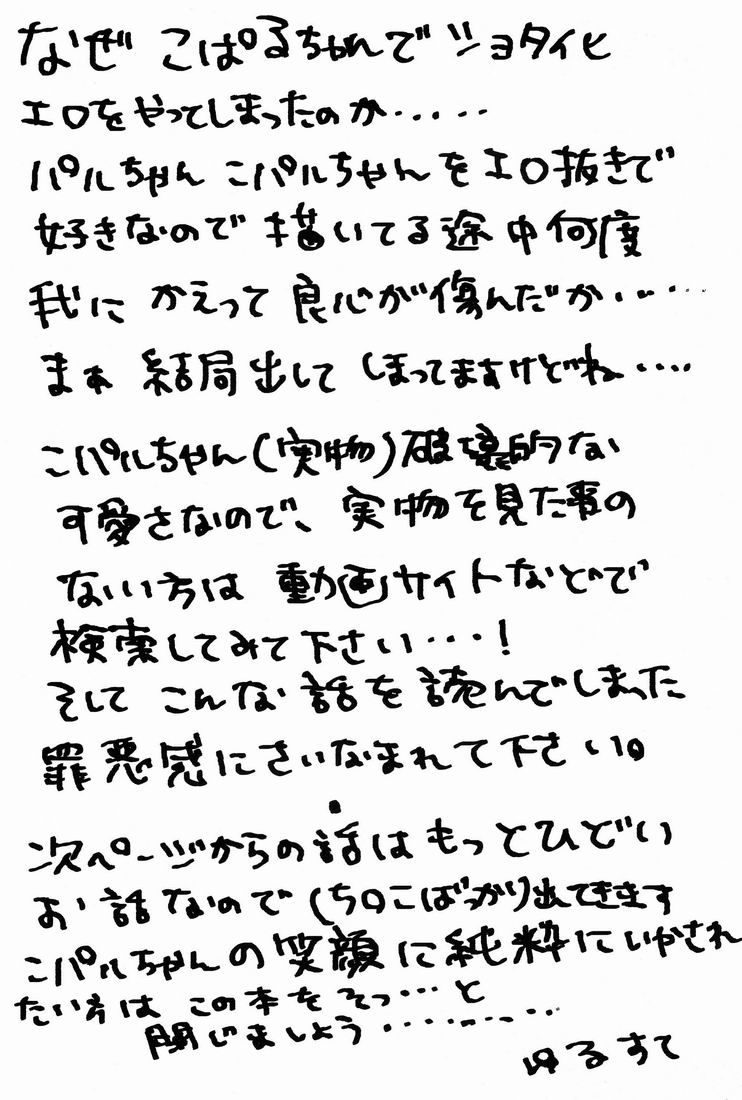 なぜ こぱるちゃんで ショタイヒ
エロをやってしまったのか.....
パルちゃん こパルちゃんをエロ抜きで
好きなので 描いてる途中何度
我に かえって 良心が傷んだか.....
まぁ 結局出して しまってますけどね....
こパルちゃん(実物)破壊的な
可愛さなので、実物を見た事の
ないい方は 動画サイトなどで
検索してみて下さい...!
そして こんな話を読んでしまった
罪悪感にさいなまれて下さい。
次ページからの話は もっとひどい
お話なので (ち口こばっかり)出てきます
こパルちゃんの笑顔に純粋にいかされ
たい方は この本を そっ...と
閉じましょう.........
ゆるすて